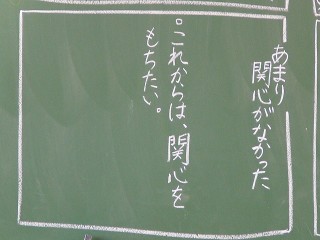 あまり
関心がなかった
。これからは、関心を
もちたい。